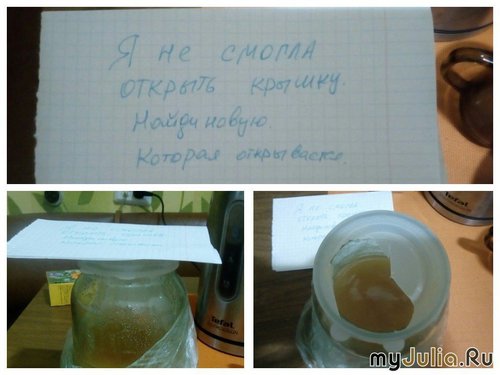 Я не смогла
открыть крышку.
Найди новую.
Которая открывается.
Tefal
Tefal
myJulia.Ru